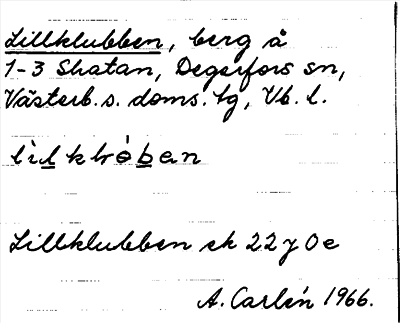 Lillklubben, berg å
1-3 Skatan, Degerfors sn,
Västerb. s. doms. tg, Vb. l.
Lillklubben ek 22 y 0 e
A. Carlén 1966.